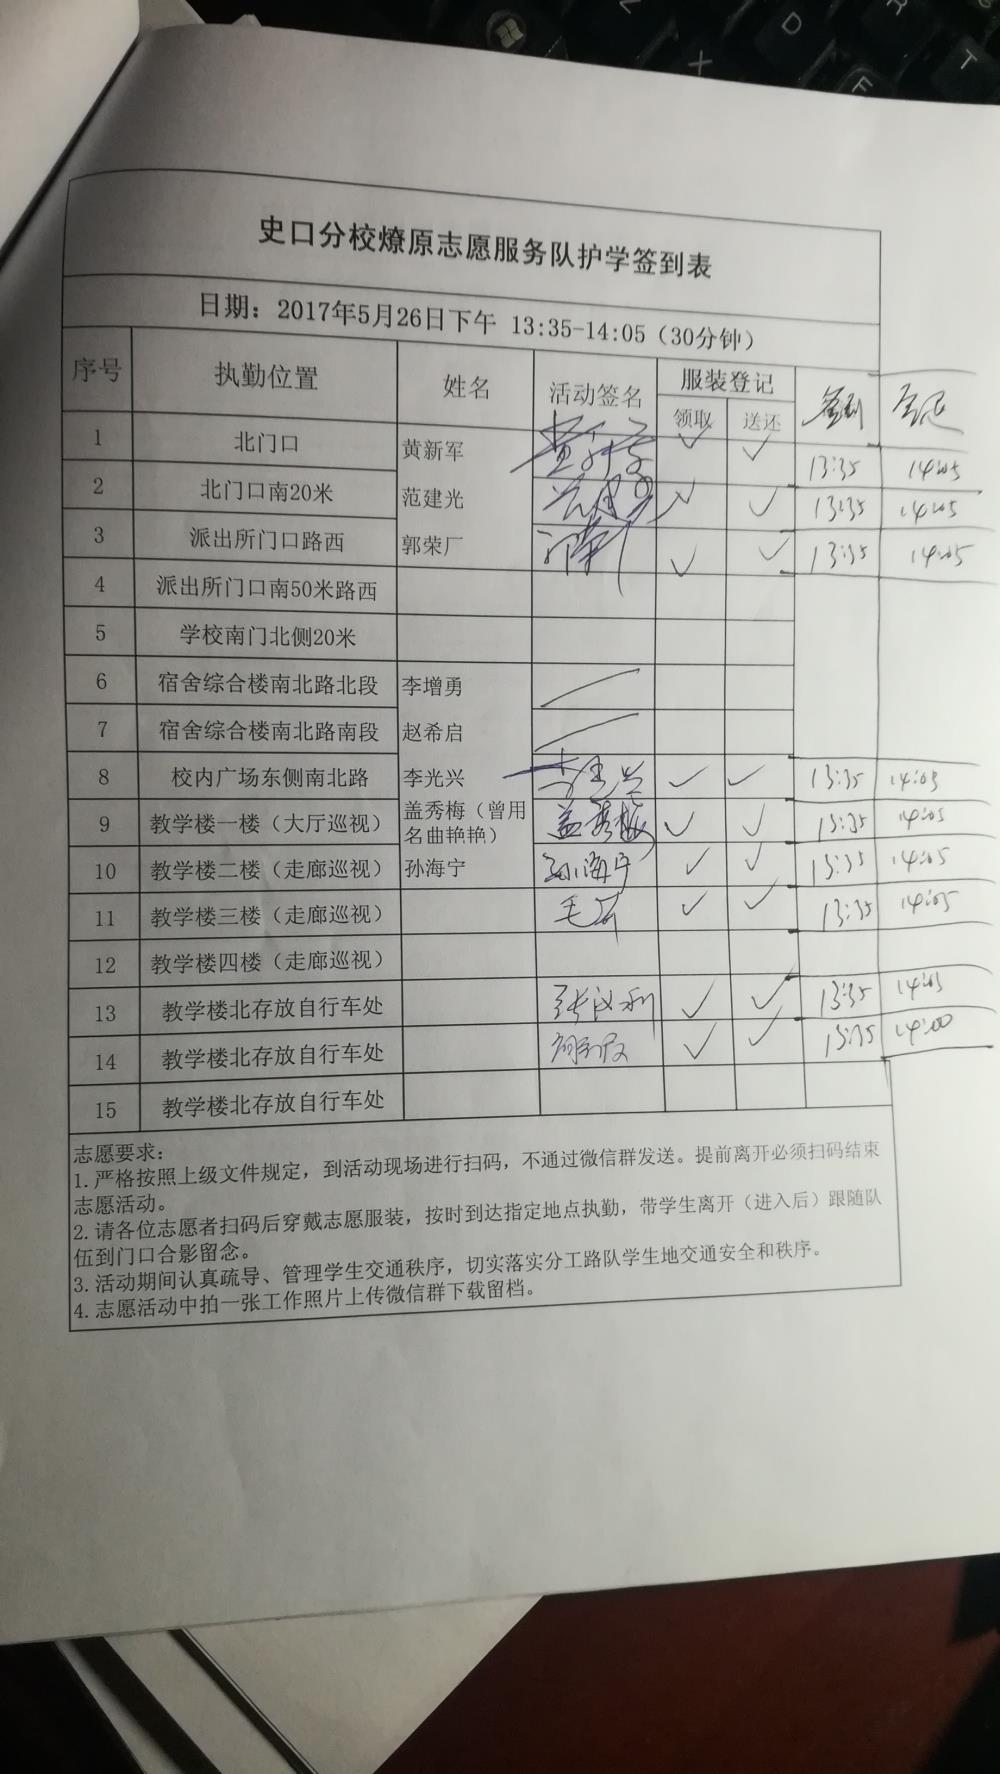 史口分校燎原志愿服务队护学签到表
日期：2017年5月26日下午 13:35-14:05（30分钟）
序号 执勤位置 姓名 活动签名 服装登记 签到 签退
领取 送还
1 北门口 黄新军 黄新军 ✓ ✓ 13:35 14:05
2 北门口南20米 范建光 ✓ ✓ 13:35 14:05
3 派出所门口路西 郭荣厂 ✓ ✓ 13:35 14:05
4 派出所门口南50米路西
5 学校南门北侧20米
6 宿舍综合楼南北路北段 李增勇
7 宿舍综合楼南北路南段 赵希启
8 校内广场东侧南北路 李光兴 李光兴 ✓ ✓ 13:35 14:05
9 教学楼一楼（大厅巡视） 盖秀梅（曾用名曲艳艳） 盖秀梅 ✓ ✓ 13:35 14:05
10 教学楼二楼（走廊巡视） 孙海宁 孙海宁 ✓ ✓ 13:35 14:05
11 教学楼三楼（走廊巡视） ✓ ✓ 13:35 14:05
12 教学楼四楼（走廊巡视）
13 教学楼北存放自行车处 ✓ ✓ 13:35 14:05
14 教学楼北存放自行车处 ✓ ✓ 13:35 14:00
15 教学楼北存放自行车处
志愿要求：
1.严格按照上级文件规定，到活动现场进行扫码，不通过微信群发送。提前离开必须扫码结束
志愿活动。
2.请各位志愿者扫码后穿戴志愿服装，按时到达指定地点执勤，带学生离开（进入后）跟随队
伍到门口合影留念。
3.活动期间认真疏导、管理学生交通秩序，切实落实分工路队学生地交通安全和秩序。
4.志愿活动中拍一张工作照片上传微信群下载留档。